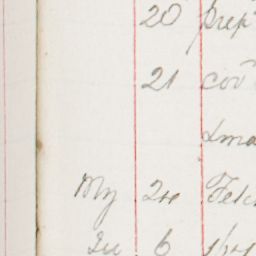 20 prep
21 cov
& ma
My 24 Fetc
Ju 6